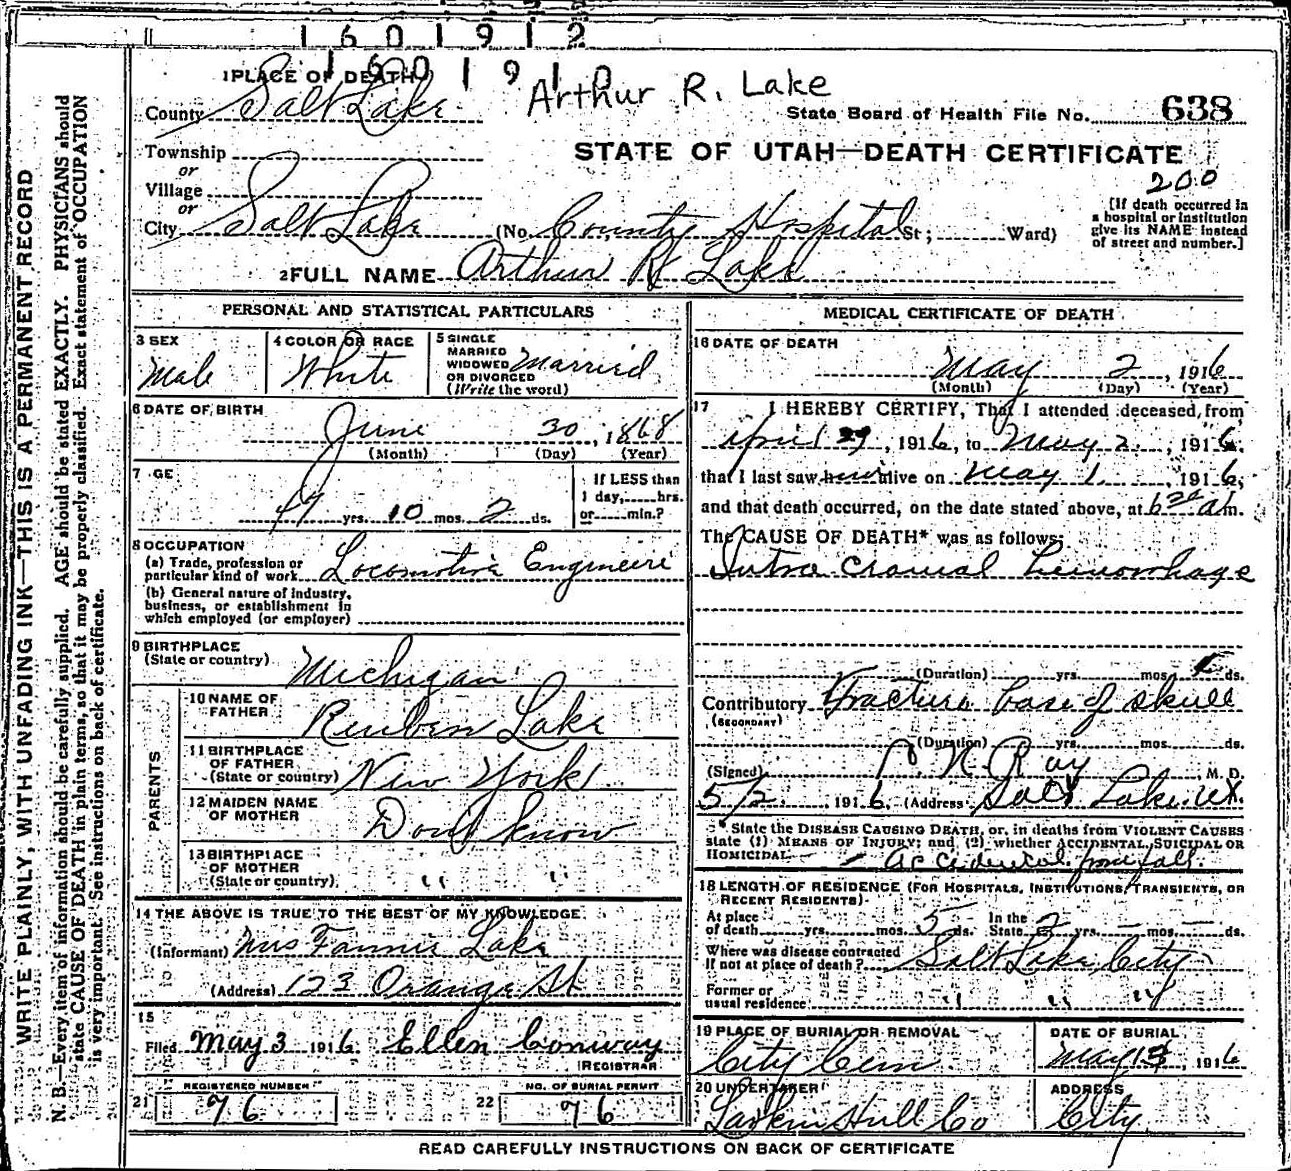 1 6 0 1 9 1 2
1 6 0 1 9 1 0
1 PLACE OF DEATH
Arthur R. Lake
County Salt Lake
State Board of Health File No. 638
Township
or
STATE OF UTAH—DEATH CERTIFICATE
200
Village
or
City Salt Lake (No. County Hospital St; Ward)
[If death occurred in a hospital or institution give its NAME instead of street and number.]
2 FULL NAME Arthur R Lake
PERSONAL AND STATISTICAL PARTICULARS
3 SEX Male
4 COLOR OR RACE White
5 SINGLE MARRIED WIDOWED OR DIVORCED (Write the word) Married
6 DATE OF BIRTH
June 30, 1868
(Month) (Day) (Year)
7 GE
47 yrs. 10 mos. 2 ds.
If LESS than 1 day, hrs. or min.?
8 OCCUPATION
(a) Trade, profession or particular kind of work Locomotive Engineer
(b) General nature of industry, business, or establishment in which employed (or employer)
9 BIRTHPLACE
(State or country) Michigan
PARENTS
10 NAME OF FATHER Reuben Lake
11 BIRTHPLACE OF FATHER (State or country) New York
12 MAIDEN NAME OF MOTHER Don't know
13 BIRTHPLACE OF MOTHER (State or country) " "
14 THE ABOVE IS TRUE TO THE BEST OF MY KNOWLEDGE
(Informant) Mrs Fannie Lake
(Address) 123 Orange St
15
Filed May 3 1916 Ellen Conway
REGISTRAR
REGISTERED NUMBER
21 76
NO. OF BURIAL PERMIT
22 76
MEDICAL CERTIFICATE OF DEATH
16 DATE OF DEATH
May 2, 1916
(Month) (Day) (Year)
17 I HEREBY CERTIFY, That I attended deceased from
April 29, 1916, to May 2, 1916,
that I last saw him alive on May 1, 1916,
and that death occurred, on the date stated above, at 6 30 a m.
The CAUSE OF DEATH* was as follows:
Intra Cranial hemorrhage
(Duration) yrs. mos. ds.
Contributory Fracture base of skull
(SECONDARY)
(Duration) yrs. mos. ds.
(Signed) P. N. Ray, M. D.
5/2, 1916 (Address) Salt Lake. Ut.
* State the DISEASE CAUSING DEATH, or, in deaths from VIOLENT CAUSES
state (1) MEANS OF INJURY; and (2) whether ACCIDENTAL, SUICIDAL OR
HOMICIDAL. Accidental from fall.
18 LENGTH OF RESIDENCE (FOR HOSPITALS, INSTITUTIONS, TRANSIENTS, OR
RECENT RESIDENTS)
At place of death yrs. mos. 5 ds. In the State 2 yrs. — mos. — ds.
Where was disease contracted if not at place of death? Salt Lake City
Former or usual residence " " "
19 PLACE OF BURIAL OR REMOVAL
City Cem
DATE OF BURIAL
May 3, 1916
20 UNDERTAKER
Larkin Hull Co
ADDRESS
City
READ CAREFULLY INSTRUCTIONS ON BACK OF CERTIFICATE
WRITE PLAINLY, WITH UNFADING INK—THIS IS A PERMANENT RECORD
N. B.—Every item of information should be carefully supplied. AGE should be stated EXACTLY. PHYSICIANS should
state CAUSE OF DEATH in plain terms, so that it may be properly classified. Exact statement of OCCUPATION
is very important. See instructions on back of certificate.